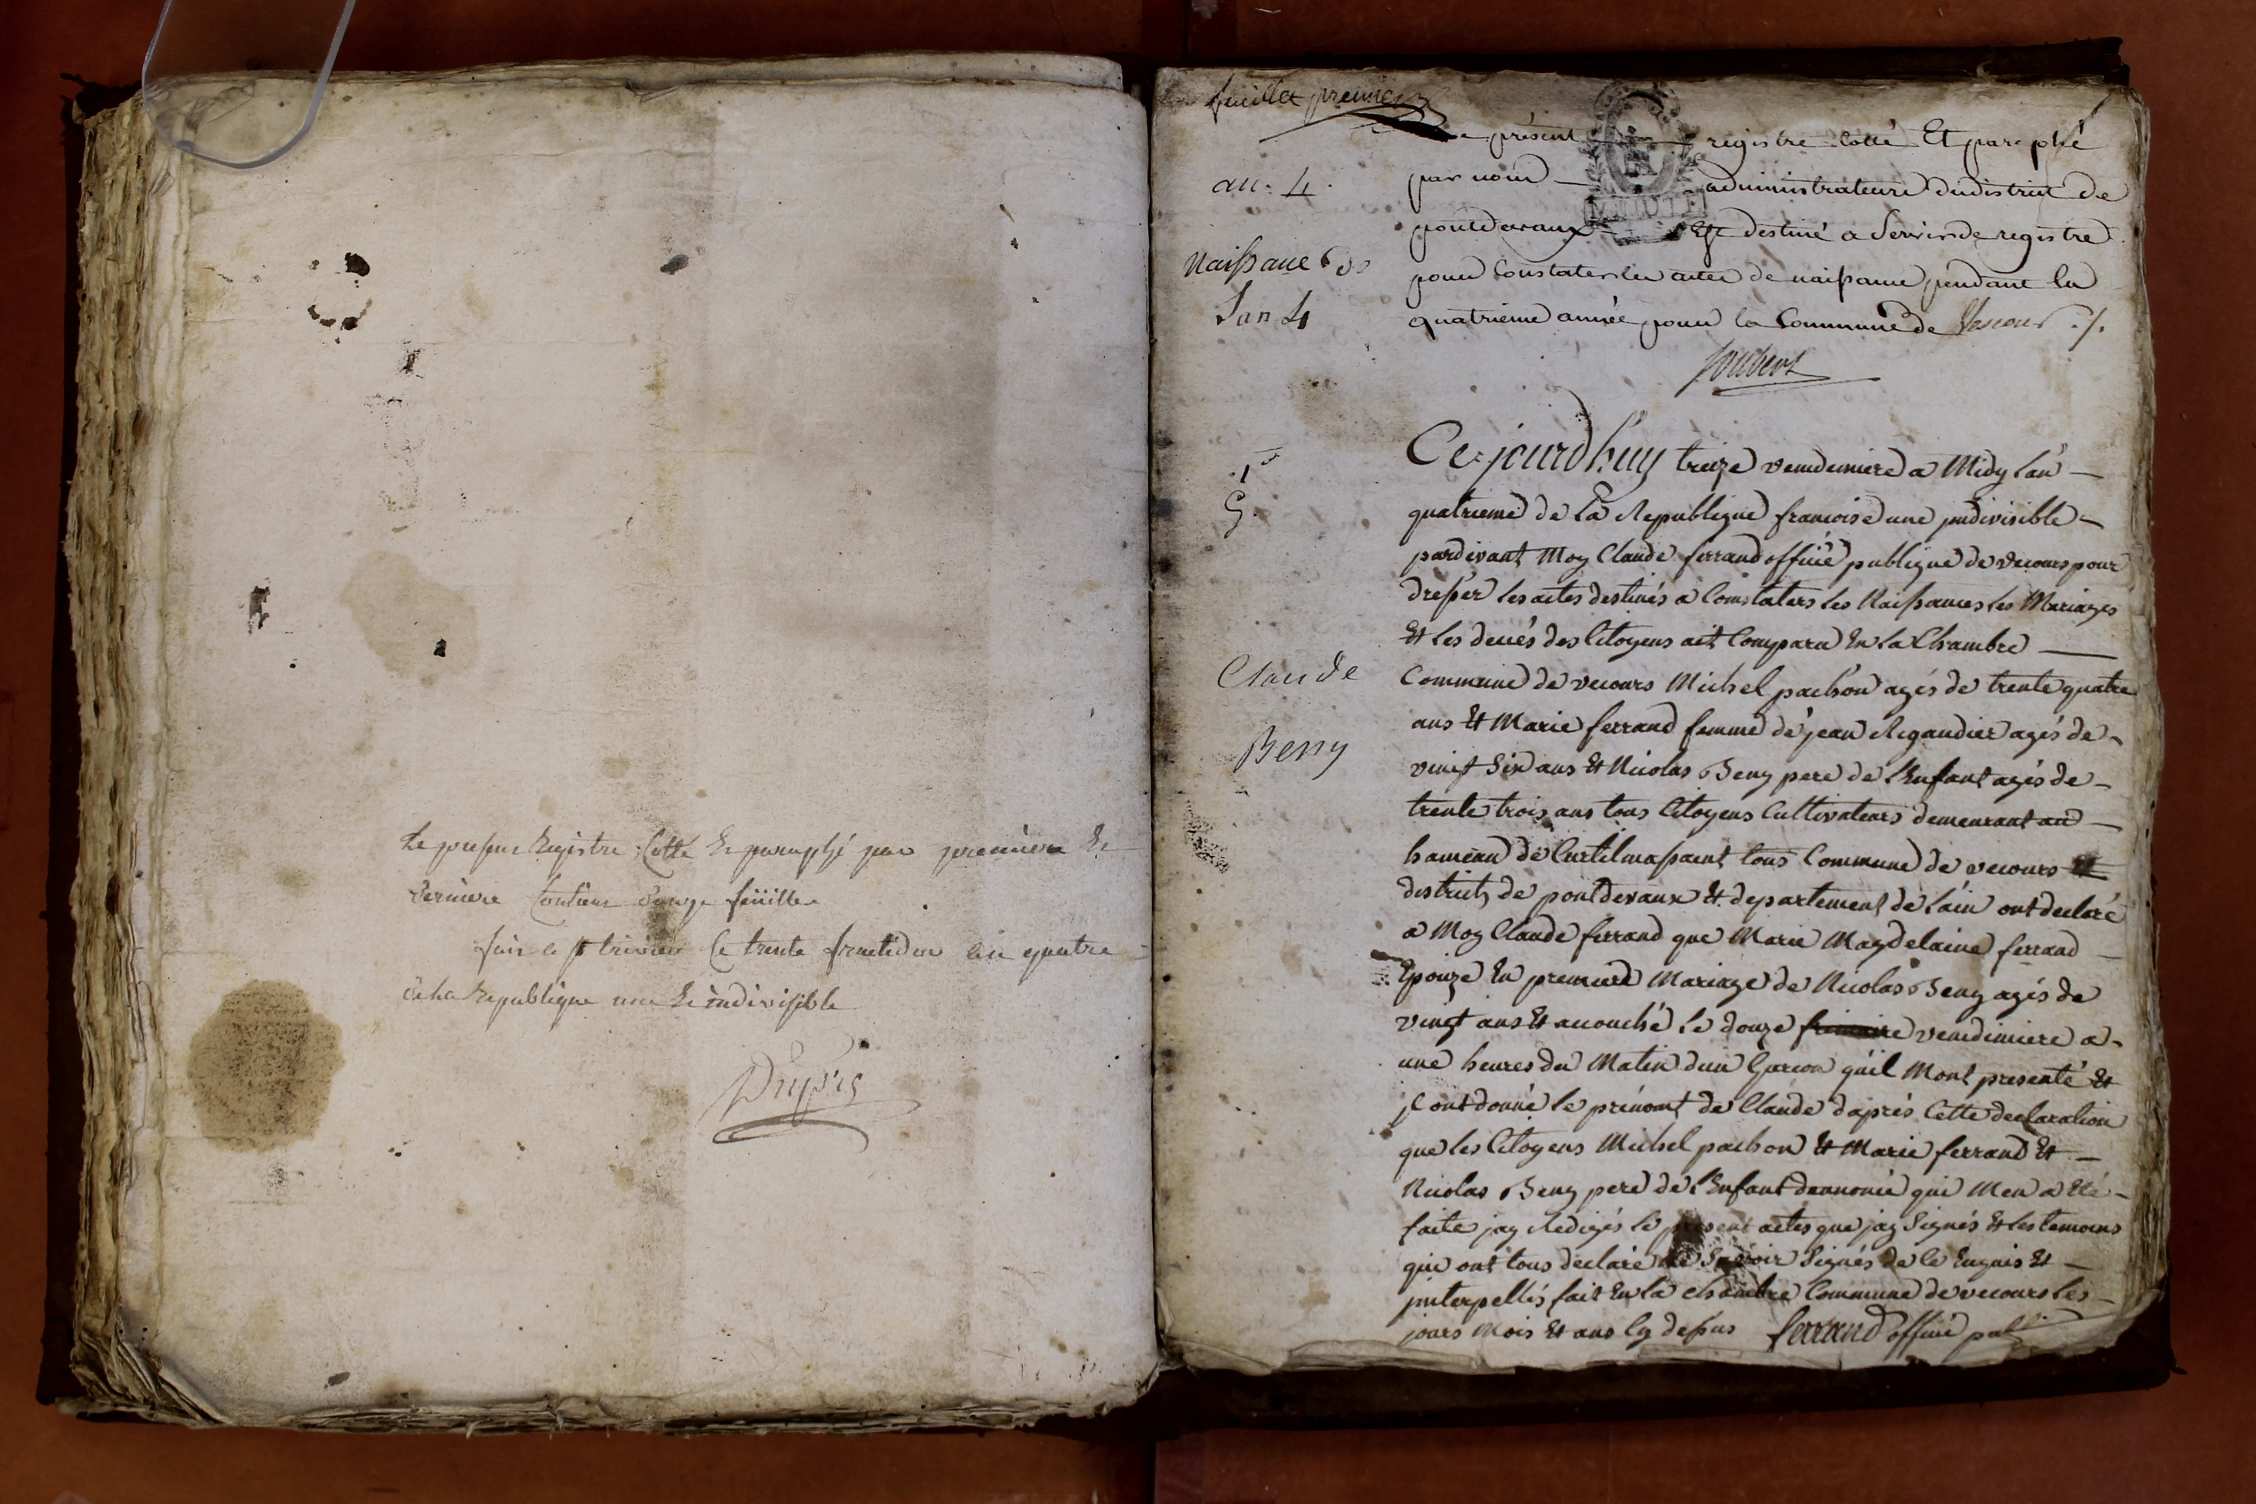 Le present Registre Cotté Et paraphé par premiere Et
derniere Contient douze feuilles
fait a st trivier Ce trente fructidor an quatre
de la Republique une Et indivisible
Dupuis
feuillet premier
Le présent registre cotté Et paraphé
par nous administrateurs du district de
pontdevaux Est destiné a Servir de registre
pour Constater les actes de naissance pendant la
quatrieme année pour la Commune de Vescours ./.
Joubert
an. 4.
Naissances de
L'an 4
1er
G.
Claude
Beny
Ce-jourd'huy treize vendemiere a Midy L'an
quatrieme de La Republique francoise une jndivisible
pardevant Moy Claude ferrand officié publique de vecours pour
dresser les actes destinés a Constaters les Naissances les Mariages
Et les deciés des Citoyens ait Comparu En la Chambre
Commune de vecours Michel pachon agés de trente quatre
ans Et Marie ferrand femme de jean Rigaudier agés de
vingt Six ans Et Nicolas Beny pere de l'Enfant agés de
trente trois ans tous Citoyens Cultivateurs demeurant au
hameau de Curtilmassaint tous Commune de vecours Et
districts de pontdevaux Et departement de L'ain ont declaré
a Moy Claude ferrand que Marie Magdelaine ferrand
Epouze En premiere Mariage de Nicolas Beny agés de
vingt ans Et accouché Le douze frimaire vendimiere a
une heures du Matin dun Garcon qu'il Mont presenté Et
jl ont donné le prénomt de Claude daprés Cette declaration
que les Citoyens Michel pachon Et Marie ferrand Et
Nicolas Beny pere de l'Enfant dennoncé qui Men a Eté
faite jay Redigés le present actes que jay Signés Et les temoins
qui ont tous declaré ne Savoir Signés de le Enquis Et
jnterpellés fait En la Chambre Commune de vecours les
jours Mois Et ans Cy dessus ferrand officié pub